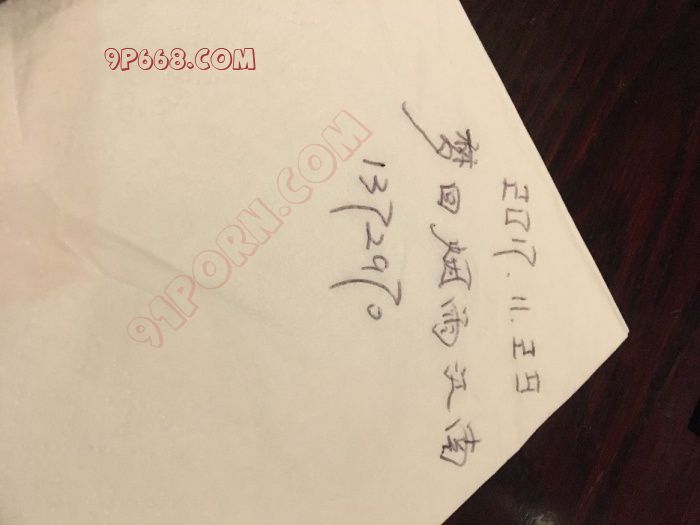 9P668.COM
91PORN.COM
2017.11.25
梦回烟雨江南
1372970